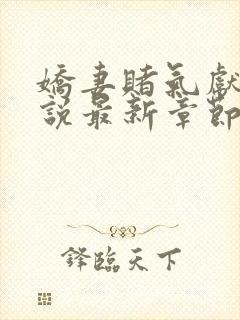 嬌妻賭氣獻
說最新章節
鋒臨天下